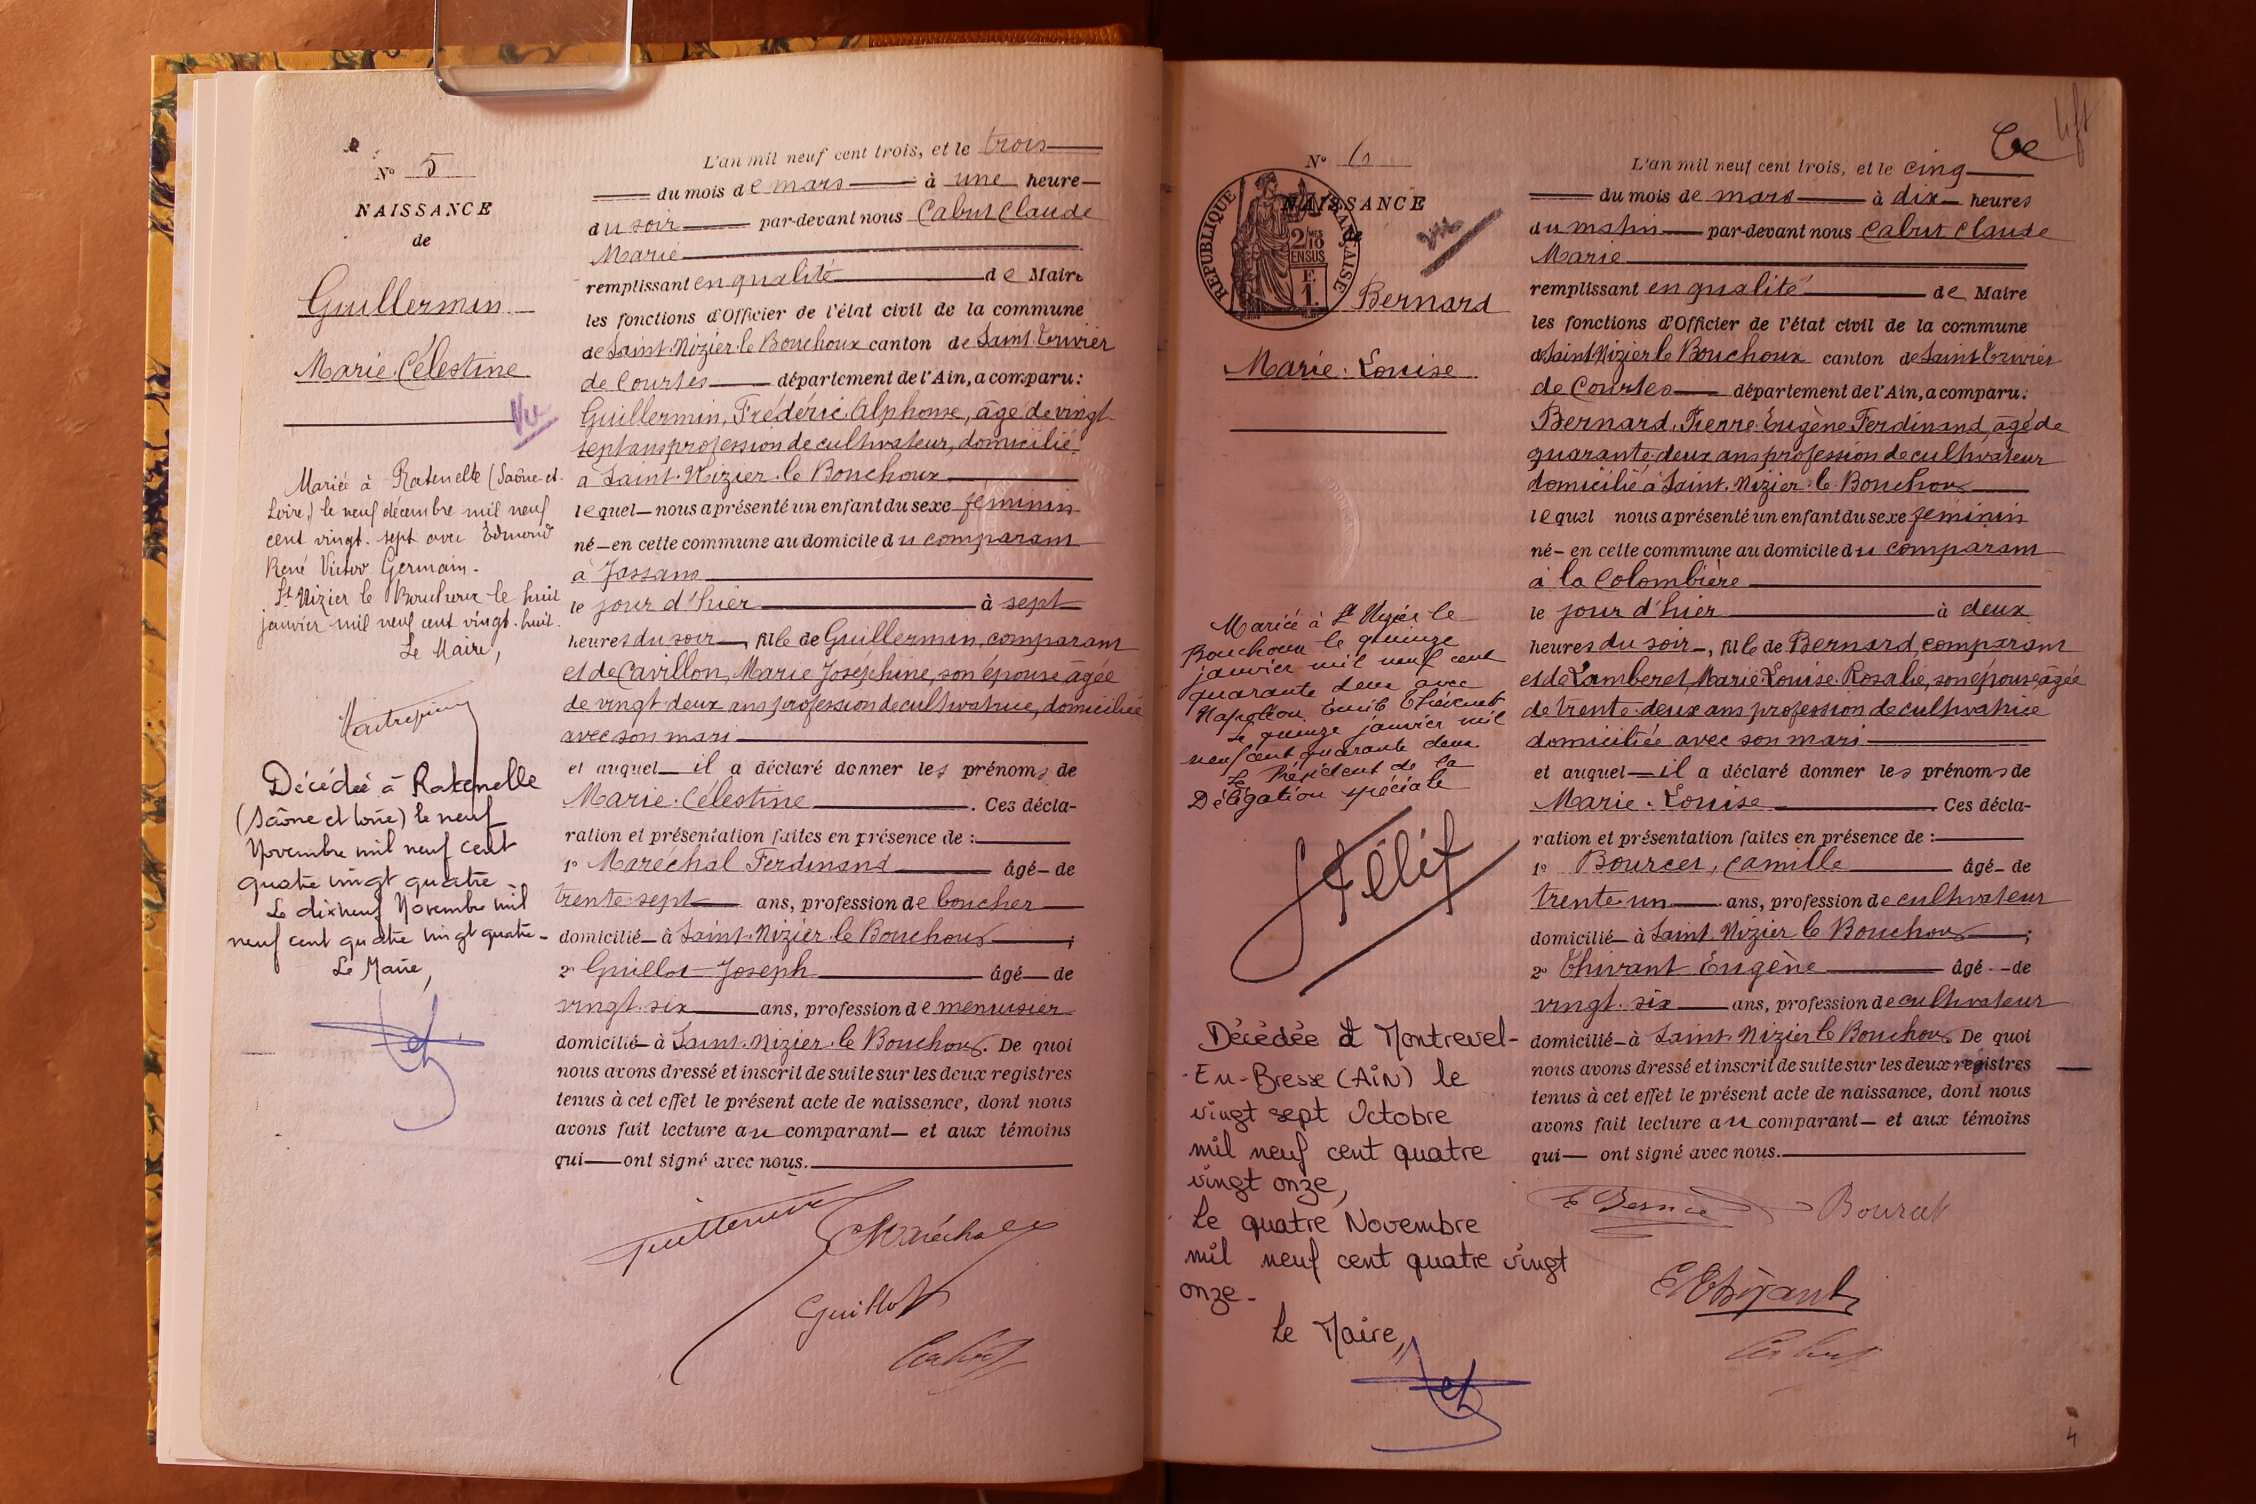 N° 5
NAISSANCE
de
Guillermin
Marie Célestine
Vu
Mariée à Ratenelle (Saône-et-
Loire,) le neuf décembre mil neuf
cent vingt-sept avec Edmond
René Victor Germain.
St Nizier le Bouchoux le huit
janvier mil neuf cent vingt-huit.
Le Maire,
Décédée à Ratenelle
(Saône et Loire) le neuf
Novembre mil neuf cent
quatre vingt quatre
Le dix neuf Novembre mil
neuf cent quatre vingt quatre-
Le Maire,
L'an mil neuf cent trois, et le trois
du mois de mars à une heure
du soir par-devant nous Cabut Claude
Marie
remplissant en qualité de Maire
les fonctions d'Officier de l'état civil de la commune
de Saint-Nizier-le Bouchoux canton de Saint-Trivier
de Courtes département de l'Ain, a comparu:
Guillermin, Frédéric Alphonse, âgé de vingt
sept ans profession de cultivateur, domicilié
à Saint-Nizier-le Bouchoux
lequel nous a présenté un enfant du sexe féminin
né en cette commune au domicile du comparant
à Jassans
le jour d'hier à sept
heures du soir, fille de Guillermin, comparant
et de Cavillon, Marie Joséphine, son épouse âgée
de vingt-deux ans profession de cultivatrice, domiciliée
avec son mari
et auquel il a déclaré donner les prénoms de
Marie-Célestine. Ces décla-
ration et présentation faites en présence de :
1° Maréchal Ferdinand âgé de
trente-sept ans, profession de boucher
domicilié à Saint-Nizier le Bouchoux;
2° Guillot Joseph âgé de
vingt-six ans, profession de menuisier
domicilié à Saint-Nizier-le Bouchoux. De quoi
nous avons dressé et inscrit de suite sur les deux registres
tenus à cet effet le présent acte de naissance, dont nous
avons fait lecture au comparant et aux témoins
qui ont signé avec nous.
Guillermin
Maréchal
Guillot
Cabut
N° 6
NAISSANCE
de
RÉPUBLIQUE FRANÇAISE
2/10
EN SUS
Bernard
Marie-Louise
Mariée à St Nizier le
Bouchoux le quinze
janvier mil neuf cent
quarante deux avec
Napoléon Emile Thévenet
Le quinze janvier mil
neuf cent quarante deux
Le Président de la
Délégation spéciale
Décédée à Montrevel-
En-Bresse (AIN) le
vingt sept Octobre
mil neuf cent quatre
vingt onze,
Le quatre Novembre
mil neuf cent quatre vingt
onze-
Le Maire,
L'an mil neuf cent trois, et le cinq
du mois de mars à dix heures
du matin par-devant nous Cabut Claude
Marie
remplissant en qualité de Maire
les fonctions d'Officier de l'état civil de la commune
de Saint Nizier le Bouchoux canton de Saint-Trivier
de Courtes département de l'Ain, a comparu:
Bernard, Pierre Eugène Ferdinand, âgé de
quarante-deux ans profession de cultivateur
domicilié à Saint-Nizier-le-Bouchoux
lequel nous a présenté un enfant du sexe féminin
né en cette commune au domicile du comparant
à la Colombière
le jour d'hier à deux
heures du soir, fille de Bernard, comparant
et de Lamberet, Marie Louise Rosalie, son épouse, âgée
de trente-deux ans profession de cultivatrice
domiciliée avec son mari
et auquel il a déclaré donner les prénoms de
Marie-Louise Ces décla-
ration et présentation faites en présence de :
1° Bourcet, Camille âgé de
trente-un ans, profession de cultivateur
domicilié à Saint-Nizier le Bouchoux;
2° Thivant Eugène âgé de
vingt-six ans, profession de cultivateur
domicilié à Saint-Nizier le Bouchoux De quoi
nous avons dressé et inscrit de suite sur les deux registres
tenus à cet effet le présent acte de naissance, dont nous
avons fait lecture au comparant et aux témoins
qui ont signé avec nous.
Bourcet
E Thivant
Cabut
4